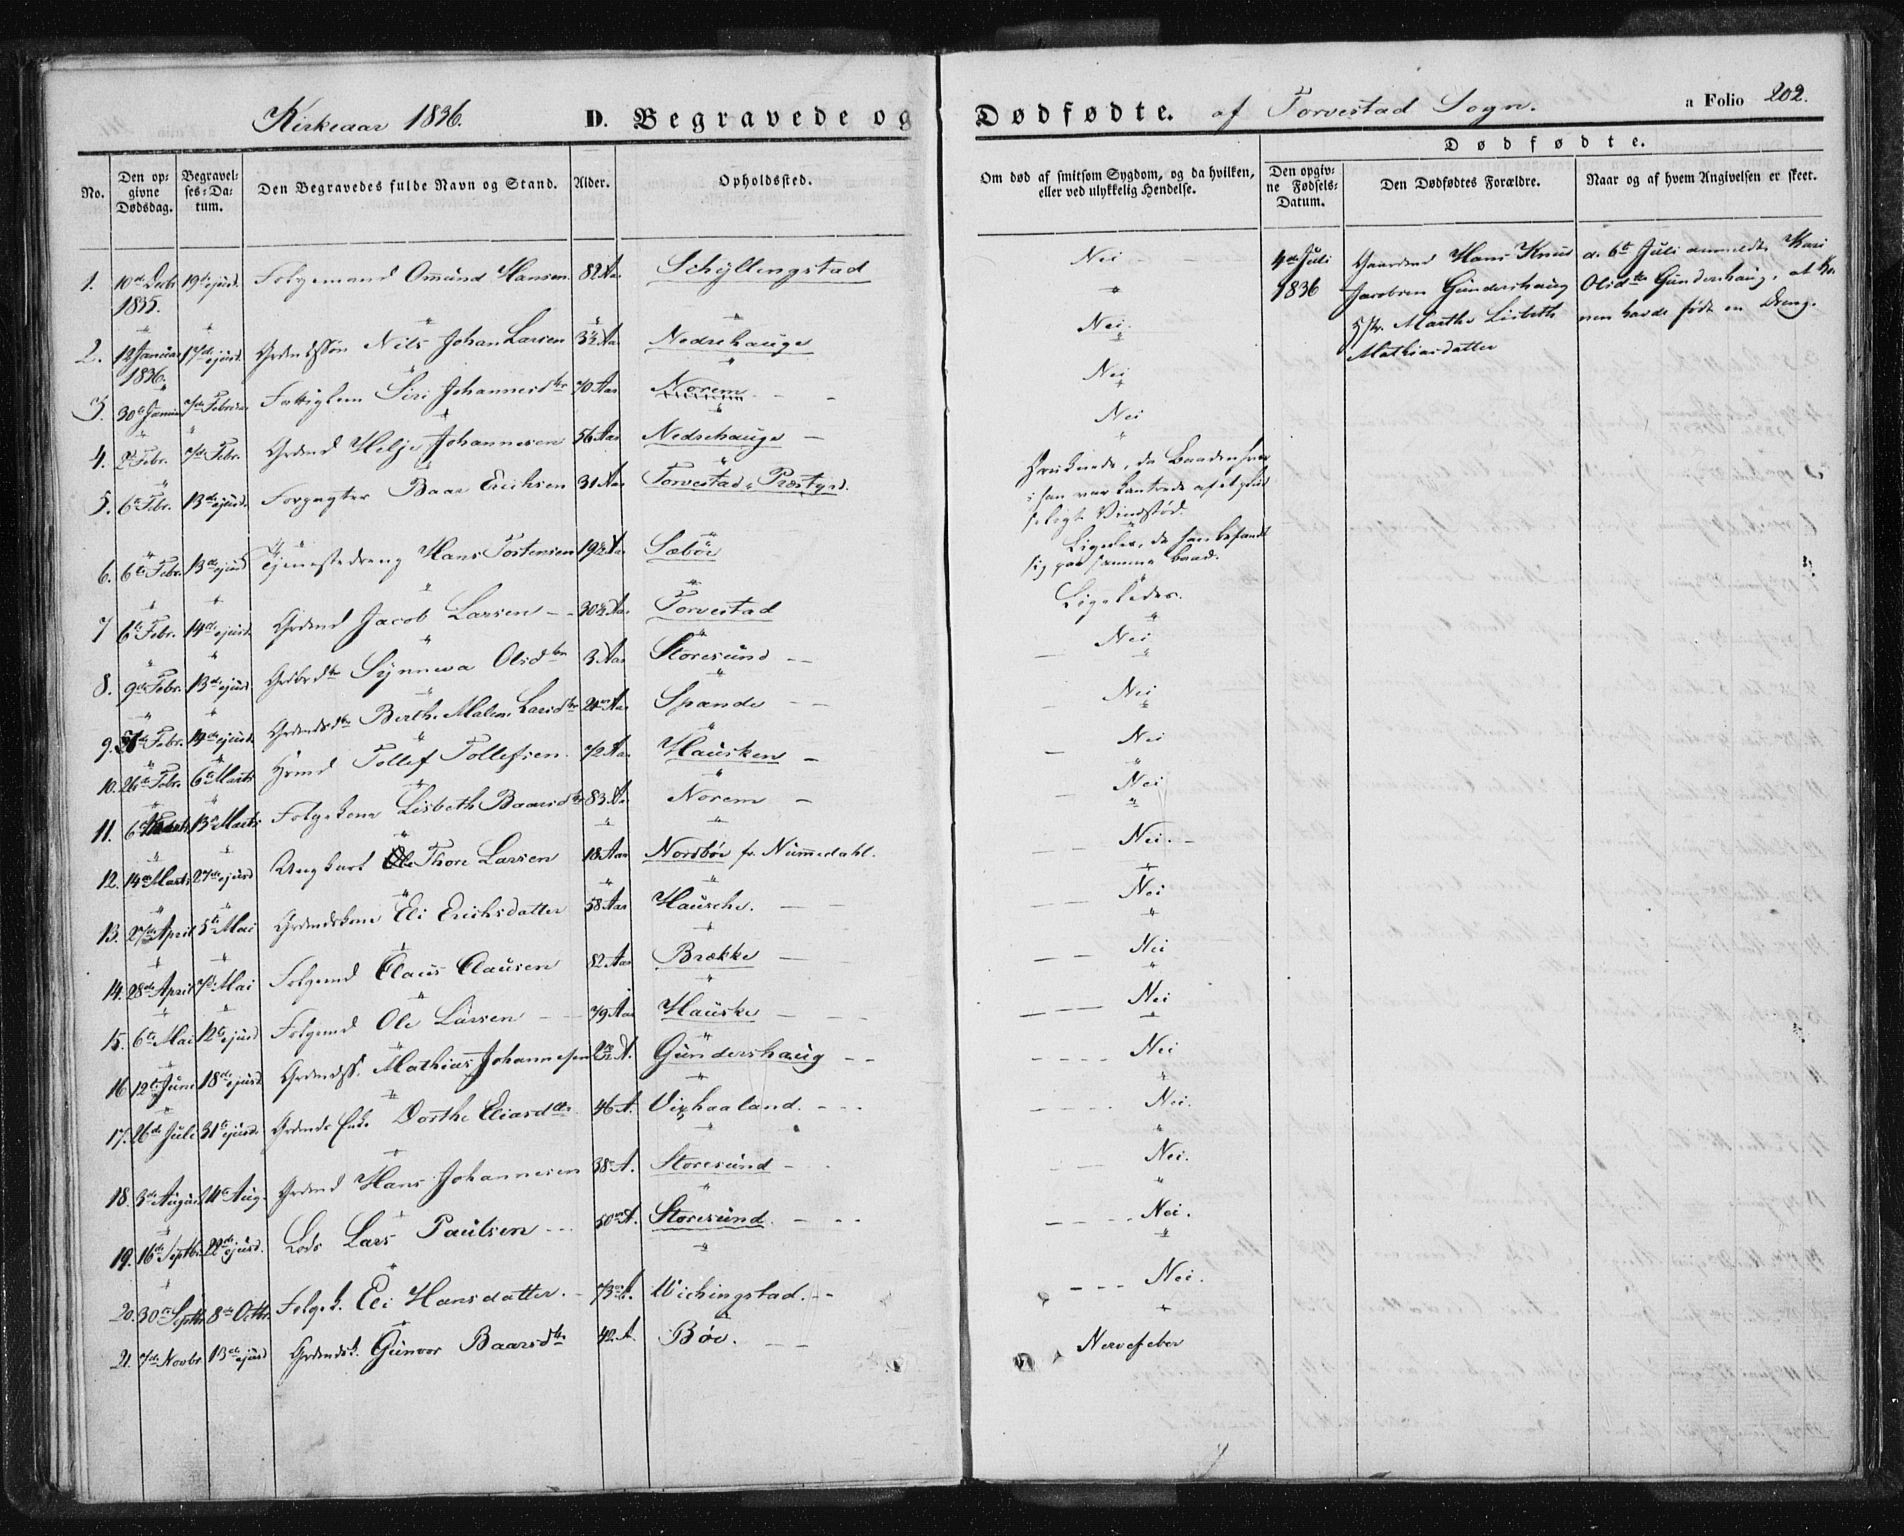 Kirkeaar 1836. D. Begravede og Dødfødte. af Torvestad Sogn. a Folio 202.
Dødfødte.
No. Den opgivne Dødsdag. Begravelses-Datum. Den Begravedes fulde Navn og Stand. Alder. Opholdssted. Om død af smitsom Sygdom, og da hvilken, eller ved ulykkelig Hendelse. Den opgivne Fødsels-Datum. Den Dødfødtes Forældre. Naar og af hvem Angivelsen er skeet.
1. 10de Decbr 1835. 19de ejusd. Folgemand Omund Hansen 82 Aar Schyllingstad Nei 4de Juli 1836 Gaardmd Hans Knus Jacobsen Gundershaug Hstr. Marthe Lisbeth Mathiasdatter d. 6te Juli anmeldte Kari Olsdtr Gundershaug, at Konen havde født en Dreng.
2. 12 Januar 1836. 17de ejusd. Grdmdssøn Nils Johan Larsen 3½ Aar Nedrehauge Nei.
3. 30te Januar 7de Februar Fattiglem Siri Johannesdtr 70 Aar Norem Nei
4. 2de Febr. 7de Febr. Grdmd Helje Johannesen 56 Aar Nedrehauge Nei
5. 6te Febr. 13de ejusd. Forpagter Baar Erichsen 31 Aar Torvestad Præstgrd. Druknede, da Baaden hvori han var kantrede af et pludseligt Vindstød.
6. 6te Febr. 13de ejusd Tjenestedreng Hans Tostensen 19½ Aar Sæbøe Ligeledes, da han befandt sig paa samme baad.
7 6te Febr. 14de ejusd. Grdmd Jacob Larsen 30½ Aar Torvestad Ligeledes.
8. 9de Febr. 13de ejusd. Grdbrdtr Synneva Olsdtr 3 Aar Storesund Nei
9. Febr. 14de ejusd. Grdmdsdtr Berthe Malene Larsdtr Aar Spande Nei
10. 26de Febr. 6te Marts Hsmd Tollef Tollefsen 72 Aar Hausken Nei
11. 6te Marts 13de Marts Folgekone Lisbeth Baarsdtr 83 Aar Norem Nei
12. 14de Marts 27de ejusd Ungkarl Thore Larsen 18 Aar Nordbøe fr. Nummedahl. Nei.
13. 27de April 5te Mai Grdmdskone Eli Erichsdatter 58 Aar Hausche. Nei
14. 28de April 7de Mai Folgemd Claus Clausen 82 Aar Brække Nei
15. 6te Mai 12te ejusd Folgemd Ole Larsen 79 Aar Hauske Nei
16 12te Juni 18de ejusd Grdmdss. Mathias Johannesen A. Gundershaug Nei
17. 26de Juli 31te ejusd. Grdmds Enke Dorthe Eliasdtr 46 A. Vixhaaland. Nei.
18. 3de August 14te Aug. Grdmd Hans Johannesen 38 A. Storesund Nei.
19. 16de Septbr. 22de ejusd. Lods Lars Paulsen 50 A. Storesund. Nei.
20. 30te Septbr. 8de Octbr. Folgek. Eli Hansdatter. 73 A. Wichingstad. Nei.
21. 7de Novbr. 13de ejusd Grdmdsk. Gunvor Baarsdtr 42 A. Bøe. Nervefeber